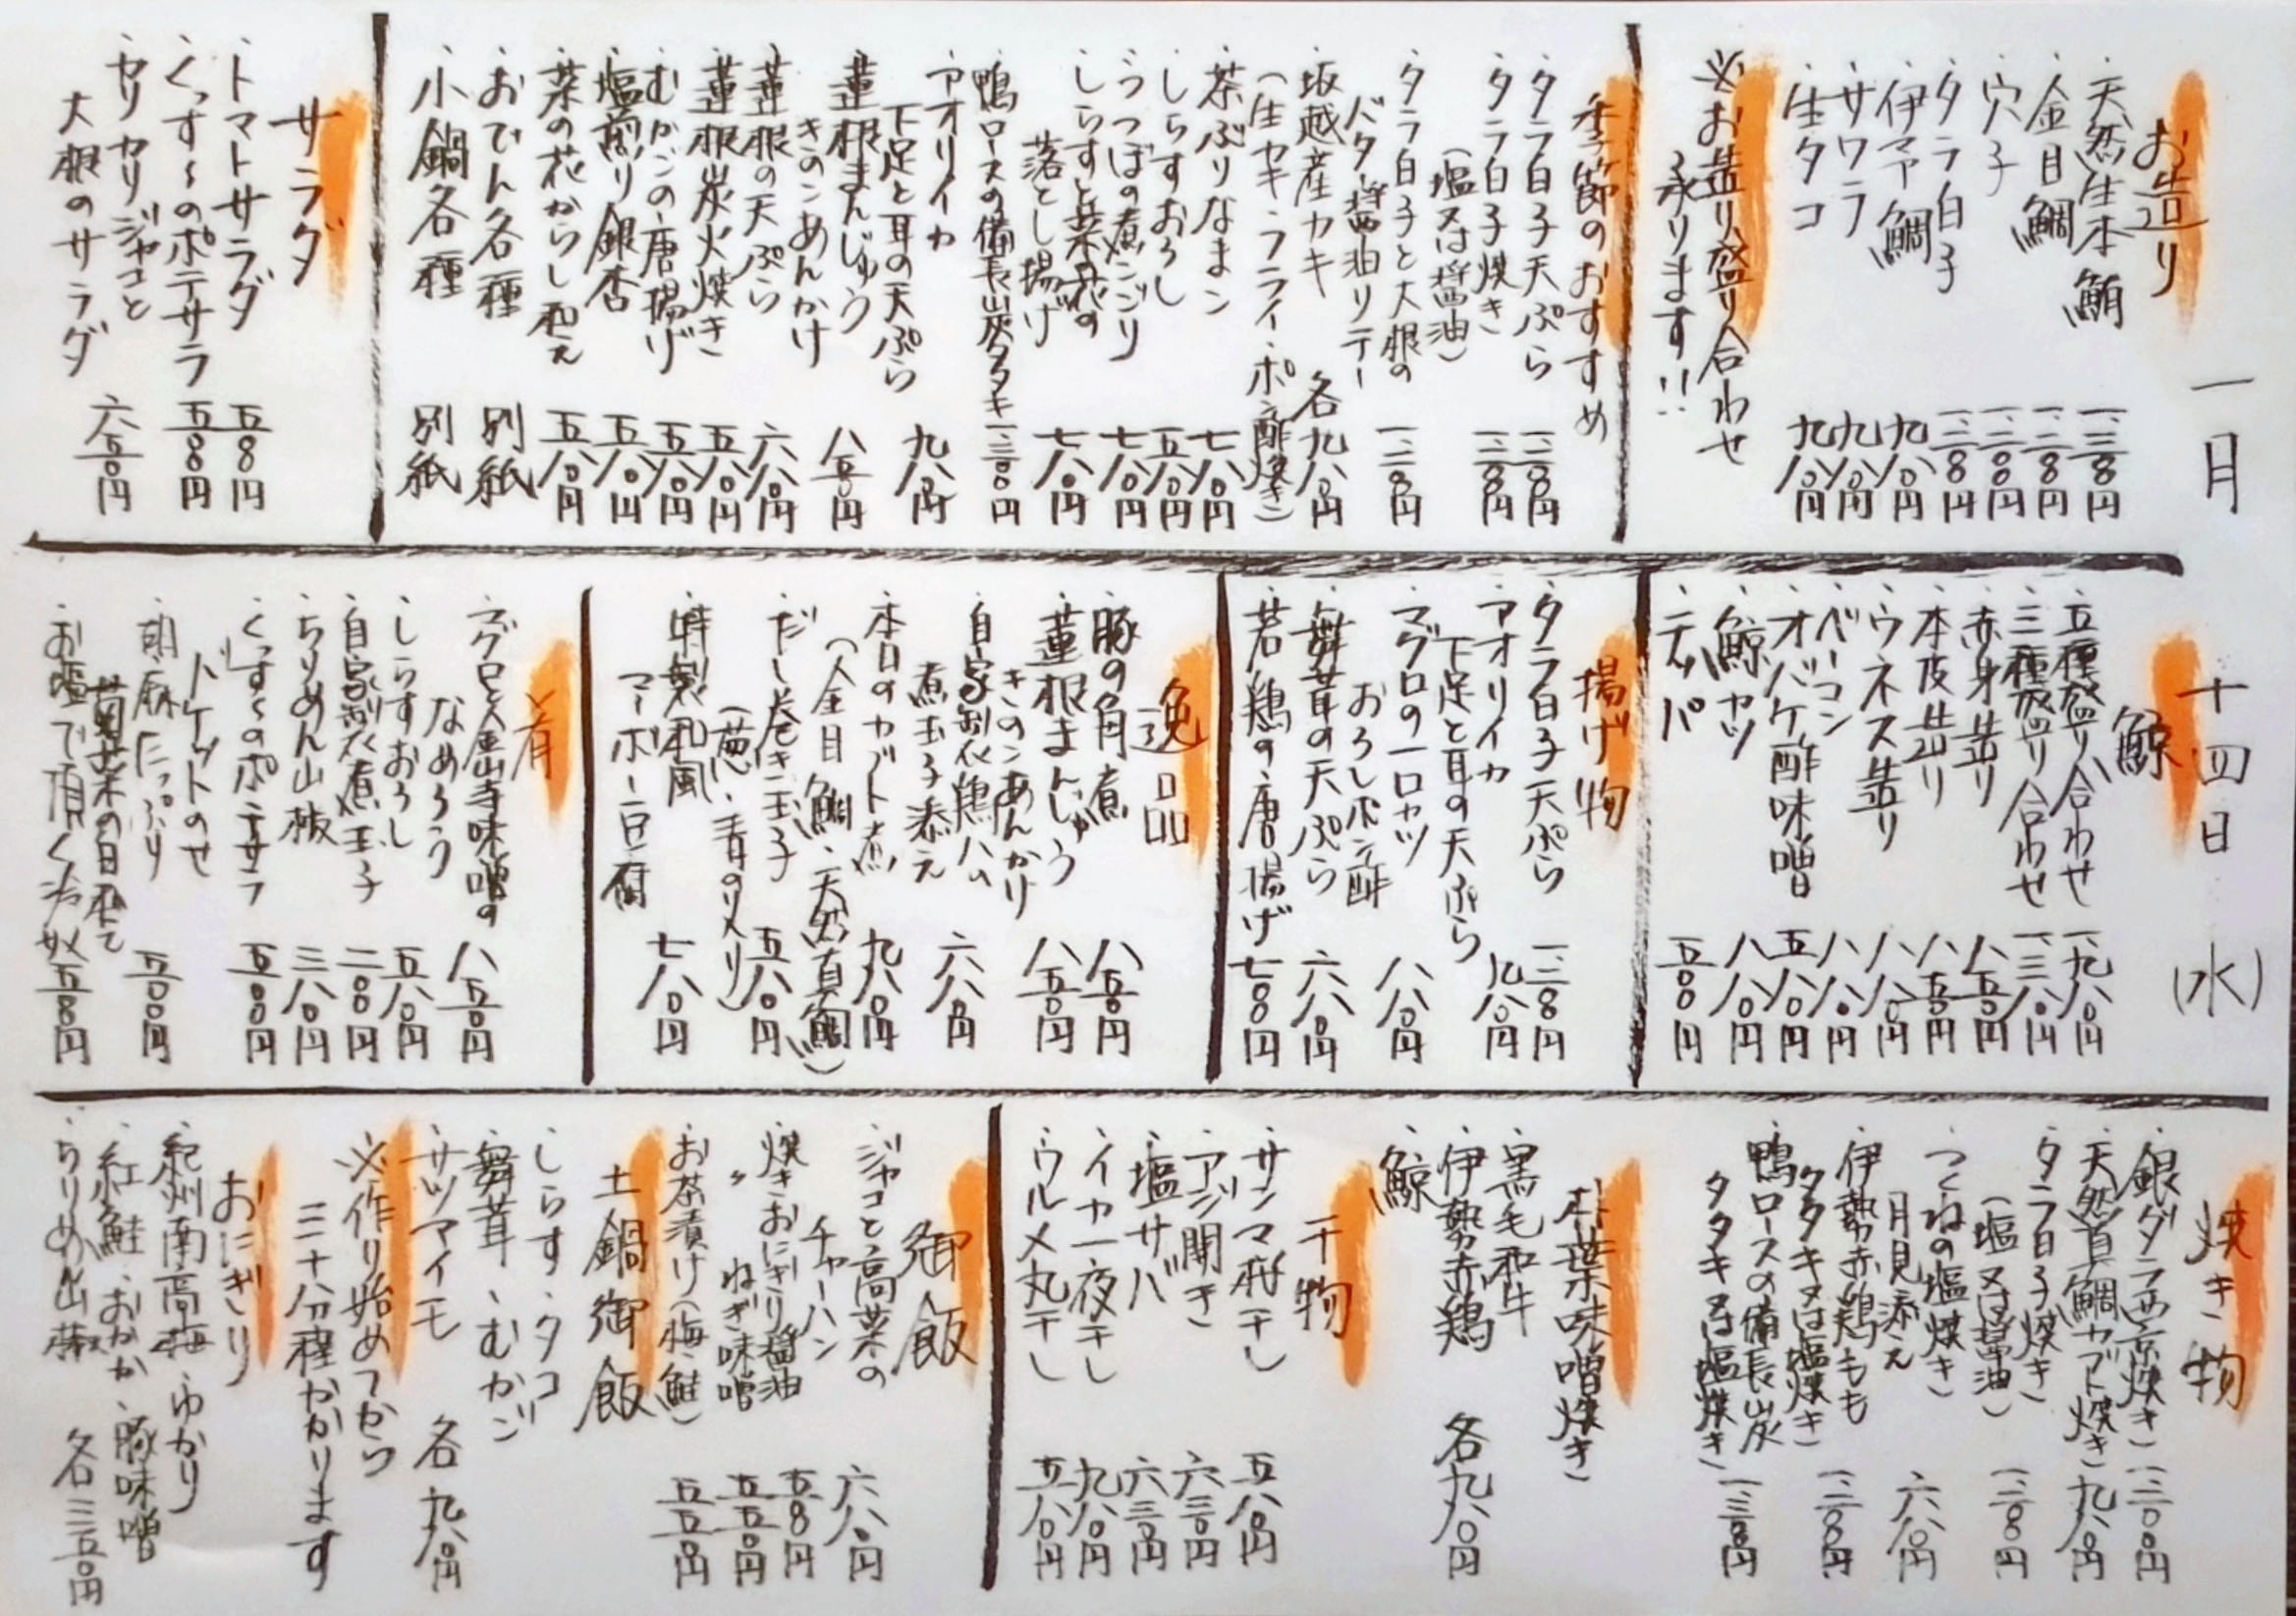 一月 十四日 (水)
お造り
・天然生本鮪 一、三〇〇円
・金目鯛 一、二〇〇円
・穴子 一、二〇〇円
・タラ白子 一、三〇〇円
・伊予鯛 九八〇円
・サワラ 九八〇円
・生タコ 九八〇円
※お造り盛り合わせ
承ります!!
季節のおすすめ
・タラ白子天ぷら 一、三〇〇円
・タラ白子焼き 一、三〇〇円
(塩又は醤油)
・タラ白子と大根の
バター醤油ソテー 一、二〇〇円
・坂越産カキ 各九八〇円
(生カキ・フライ・ポン酢焼き)
・茶ぶりなまこ 七八〇円
・しらすおろし 五八〇円
・うつぼの煮こごり 七八〇円
・しらすと菜の花の
落とし揚げ 七八〇円
・鴨ロースの備長炭タタキ 一、三〇〇円
・アオリイカ
下足と耳の天ぷら 九八〇円
・蓮根まんじゅう
きのこあんかけ 八五〇円
・蓮根の天ぷら 六八〇円
・蓮根炭火焼き 五八〇円
・むかごの唐揚げ 五八〇円
・塩煎り銀杏 五八〇円
・菜の花からし和え 五八〇円
・おでん各種 別紙
・小鍋各種 別紙
サラダ
・トマトサラダ 五〇〇円
・くっす〜のポテサラ 五〇〇円
・カリカリジャコと
大根のサラダ 六五〇円
鯨
・五種盛り合わせ 一、九八〇円
・三種盛り合わせ 一、三八〇円
・赤身造り 八五〇円
・本皮造り 八五〇円
・ウネス造り 八八〇円
・ベーコン 八八〇円
・オバケ酢味噌 五八〇円
・鯨カツ 八八〇円
・テッパ 五〇〇円
揚げ物
・タラ白子天ぷら 一、三〇〇円
・アオリイカ
下足と耳の天ぷら 九八〇円
・マグロの一口カツ
おろしポン酢 八八〇円
・舞茸の天ぷら 六八〇円
・若鶏の唐揚げ 七〇〇円
逸品
・豚の角煮 八五〇円
・蓮根まんじゅう
きのこあんかけ 八五〇円
・自家製衣鶏ハム
煮玉子添え 六八〇円
・本日のカブト煮 九八〇円
(金目鯛・天然真鯛)
・だし巻き玉子 五八〇円
(葱・青のり入り)
・特製和風
マーボー豆腐 七八〇円
肴
・マグロと金山寺味噌の
なめろう 八五〇円
・しらすおろし 五八〇円
・自家製衣煮玉子 二〇〇円
・ちりめん山椒 三八〇円
・くっす〜のポテサラ
バゲットのせ 五〇〇円
・胡麻たっぷり
菊菜の白和え 五〇〇円
・お塩で頂く冷奴 五〇〇円
焼き物
・銀ダラ西京焼き 一、三〇〇円
・天然真鯛カブト焼き 九八〇円
・タラ白子焼き
(塩又は醤油) 一、三〇〇円
・つくねの塩焼き
月見添え 六八〇円
・伊勢赤鶏もも
タタキ又は塩焼き 一、三〇〇円
・鴨ロースの備長炭
タタキ又は塩焼き 一、三〇〇円
朴葉味噌焼き
・黒毛和牛
・伊勢赤鶏 各九八〇円
・鯨
干物
・サンマ桜干し 五八〇円
・アジ開き 六三〇円
・塩サバ 六三〇円
・イカ一夜干し 九八〇円
・ウルメ丸干し 五八〇円
御飯
・ジャコと高菜の
チャーハン 六八〇円
・焼きおにぎり醤油 五〇〇円
・〃 ねぎ味噌 五五〇円
・お茶漬け(梅・鮭) 五五〇円
土鍋御飯
・しらす・タコ
・舞茸・むかご
・サツマイモ 各九八〇円
※作り始めてから
三十分程かかります
おにぎり
・紀州南高梅・ゆかり
・紅鮭・おかか・豚味噌
・ちりめん山椒 各三五〇円